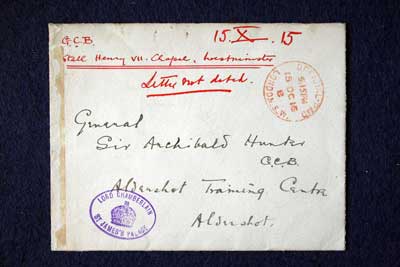 G.C.B.
15.X.15
Stall Henry VII. Chapel, Westminster
Letter not dated.
OFFICIAL PAID
5.15 PM
15 OC 15
LONDON S.W.
General
Sir Archibald Hunter
G.C.B.
Aldershot Training Centre
Aldershot.
LORD CHAMBERLAIN
ST JAMES'S PALACE